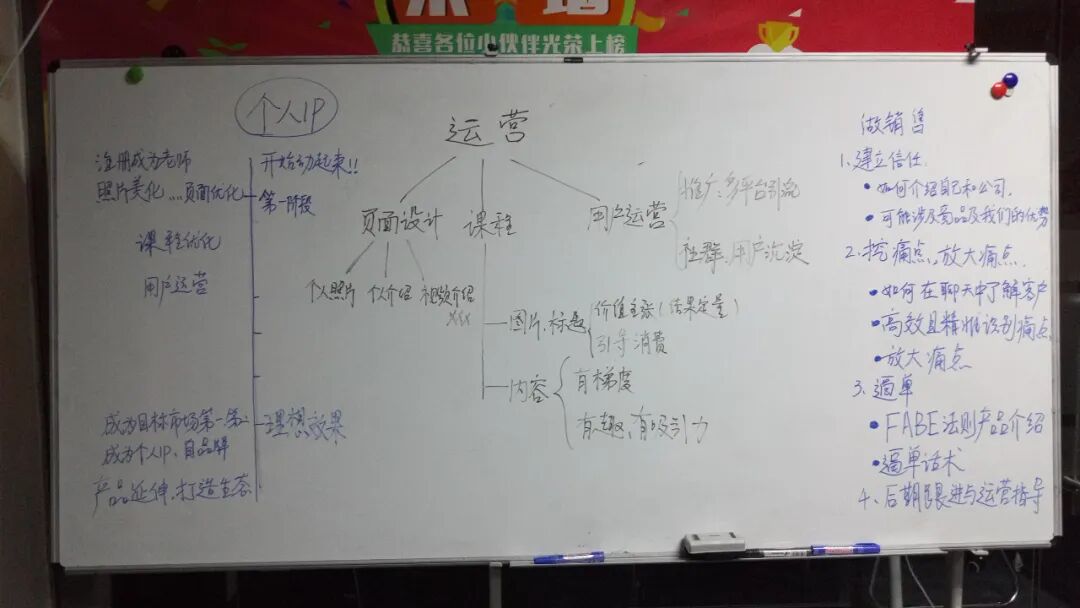 恭喜各位小伙伴光荣上榜
个人IP
注册成为老师
照片美化....页面优化
课程优化
用户运营
成为目标市场第一第二
成为个人IP、自品牌
产品延伸、打造生态
开始动起来!!
第一阶段
理想效果
运营
页面设计
课程
用户运营
推广:多平台引流
社群、用户沉淀
个人照片
个人介绍
视频介绍
图片、标题
价值主张(结果定量)
引导消费
内容
有梯度
有趣、有吸引力
做销售
1.建立信任
•如何介绍自己和公司.
•可能涉及竞品及我们的优势
2.挖痛点、放大痛点.
•如何在聊天中了解客户
•高效且精准识别痛点
•放大痛点
3、逼单
•FABE法则产品介绍
•逼单话术
4、后期跟进与运营指导